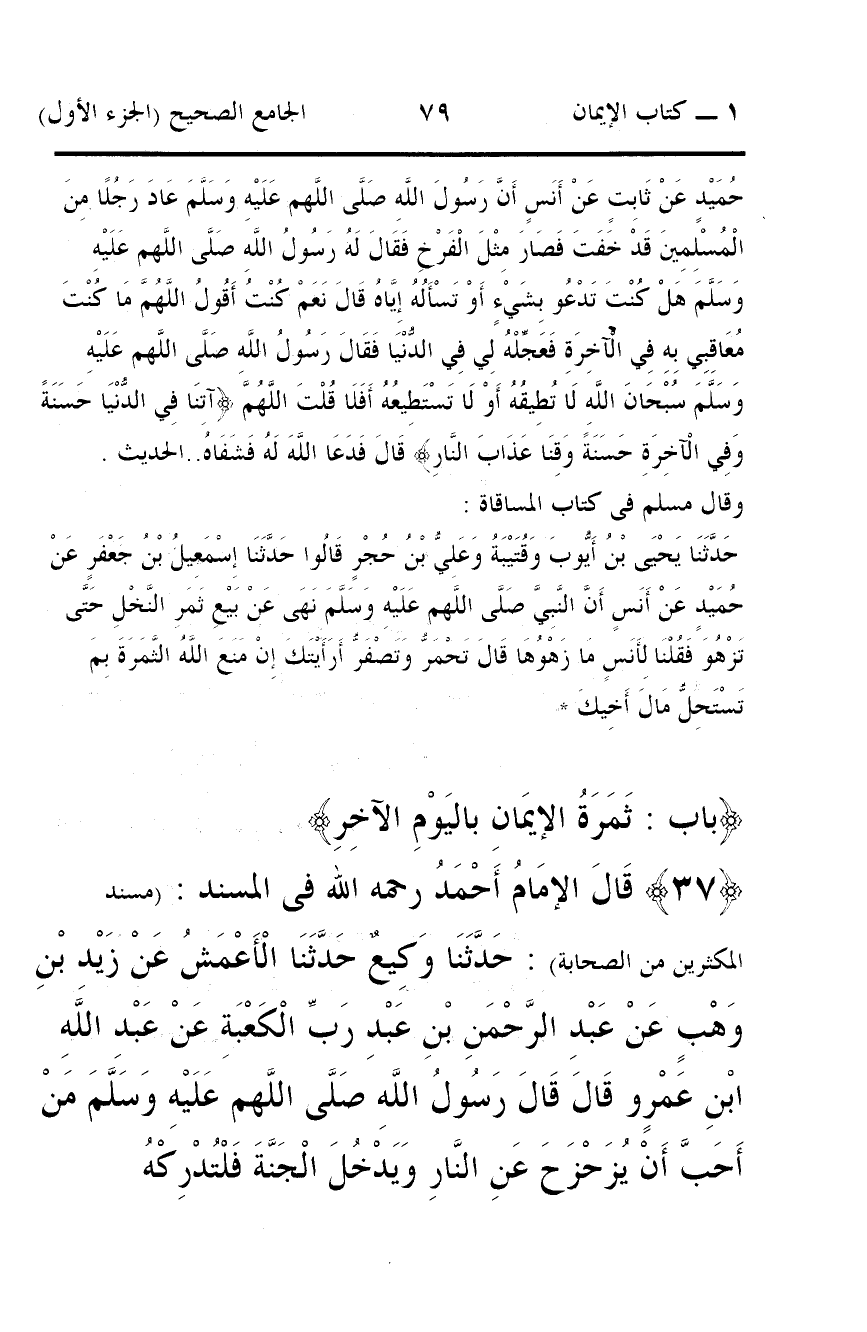 ١ ـــ كتاب الإيمان ٧٩ الجامع الصحيح (الجزء الأول)
حُمَيْدٍ عَنْ ثَابِتٍ عَنْ أَنَسٍ أَنَّ رَسُولَ اللَّهِ صَلَّى اللهم عَلَيْهِ وَسَلَّمَ عَادَ رَجُلًا مِنَ
الْمُسْلِمِينَ قَدْ خَفَتَ فَصَارَ مِثْلَ الْفَرْخِ فَقَالَ لَهُ رَسُولُ اللَّهِ صَلَّى اللهم عَلَيْهِ
وَسَلَّمَ هَلْ كُنْتَ تَدْعُو بِشَيْءٍ أَوْ تَسْأَلُهُ إِيَّاهُ قَالَ نَعَمْ كُنْتُ أَقُولُ اللَّهُمَّ مَا كُنْتَ
مُعَاقِبِي بِهِ فِي الْآخِرَةِ فَعَجِّلْهُ لِي فِي الدُّنْيَا فَقَالَ رَسُولُ اللَّهِ صَلَّى اللهم عَلَيْهِ
وَسَلَّمَ سُبْحَانَ اللَّهِ لَا تُطِيقُهُ أَوْ لَا تَسْتَطِيعُهُ أَفَلَا قُلْتَ اللَّهُمَّ ﴿آتِنَا فِي الدُّنْيَا حَسَنَةً
وَفِي الْآخِرَةِ حَسَنَةً وَقِنَا عَذَابَ النَّارِ﴾ قَالَ فَدَعَا اللَّهَ لَهُ فَشَفَاهُ..الحديث .
وقال مسلم فى كتاب المساقاة :
حَدَّثَنَا يَحْيَى بْنُ أَيُّوبَ وَقُتَيْبَةُ وَعَلِيُّ بْنُ حُجْرٍ قَالُوا حَدَّثَنَا إِسْمَعِيلُ بْنُ جَعْفَرٍ عَنْ
حُمَيْدٍ عَنْ أَنَسٍ أَنَّ النَّبِيَّ صَلَّى اللهم عَلَيْهِ وَسَلَّمَ نَهَى عَنْ بَيْعِ ثَمَرِ النَّخْلِ حَتَّى
تَزْهُوَ فَقُلْنَا لِأَنَسٍ مَا زَهْوُهَا قَالَ تَحْمَرُّ وَتَصْفَرُّ أَرَأَيْتَكَ إِنْ مَنَعَ اللَّهُ الثَّمَرَةَ بِمَ
تَسْتَحِلُّ مَالَ أَخِيكَ *
﴿باب : ثَمَرَةُ الإِيمَانِ بِاليَوْمِ الآخِرِ﴾
﴿٣٧﴾ قَالَ الإِمَامُ أَحْمَدُ رحمه الله فى المسند : (مسند
المكثرين من الصحابة) : حَدَّثَنَا وَكِيعٌ حَدَّثَنَا الْأَعْمَشُ عَنْ زَيْدِ بْنِ
وَهْبٍ عَنْ عَبْدِ الرَّحْمَنِ بْنِ عَبْدِ رَبِّ الْكَعْبَةِ عَنْ عَبْدِ اللَّهِ
ابْنِ عَمْرٍو قَالَ قَالَ رَسُولُ اللَّهِ صَلَّى اللهم عَلَيْهِ وَسَلَّمَ مَنْ
أَحَبَّ أَنْ يُزَحْزَحَ عَنِ النَّارِ وَيَدْخُلَ الْجَنَّةَ فَلْتُدْرِكْهُ